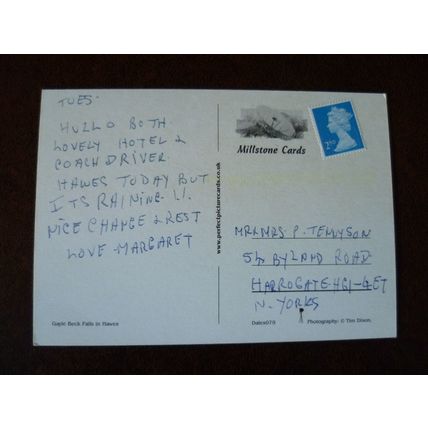 TUES.
HULLO BOTH.
LOVELY HOTEL &
COACH DRIVER.
HAWES TODAY BUT
ITS RAINING !!
NICE CHANGE & REST
LOVE MARGARET
Gayle Beck Falls in Hawes
www.perfectpicturecards.co.uk
Millstone Cards
2ND
MR & MRS P. TENNYSON
54 BYLAND ROAD
HARROGATE HG1-4ET
N. YORKS
Dales079
Photography: © Tim Dixon.